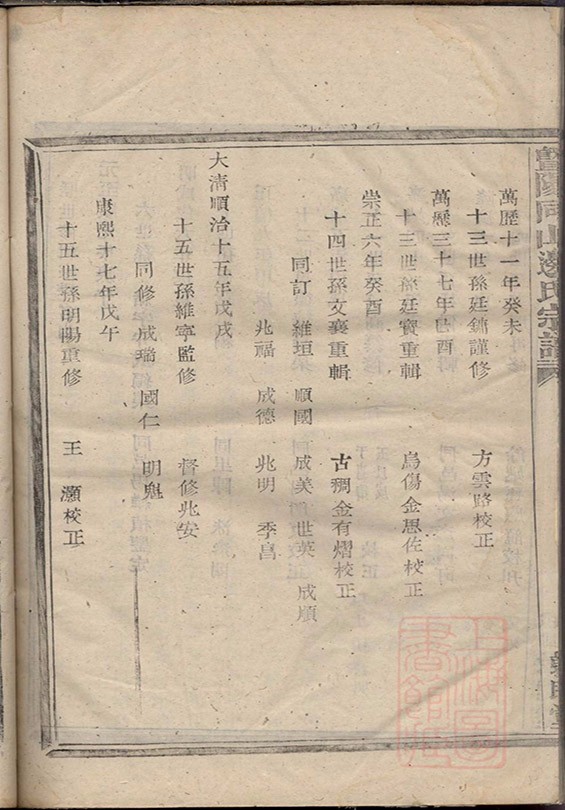 暨陽同山邊氏宗譜
萬歷十一年癸未
十三世孫廷鏞謹修　方雲路校正
萬歷三十七年己酉
十三世孫廷寶重輯　烏傷金愚佐校正
崇正六年癸酉
十四世孫文襄重輯　古稠金有熠校正
同訂　維垣　順國　成美　世英　成順
兆福　成德　兆明　季昌
大清順治十五年戊戌
十五世孫維寧監修　督修兆安
同修成瑞　國仁　明魁
康熙十七年戊午
十五世孫明陽重修　王　灝校正